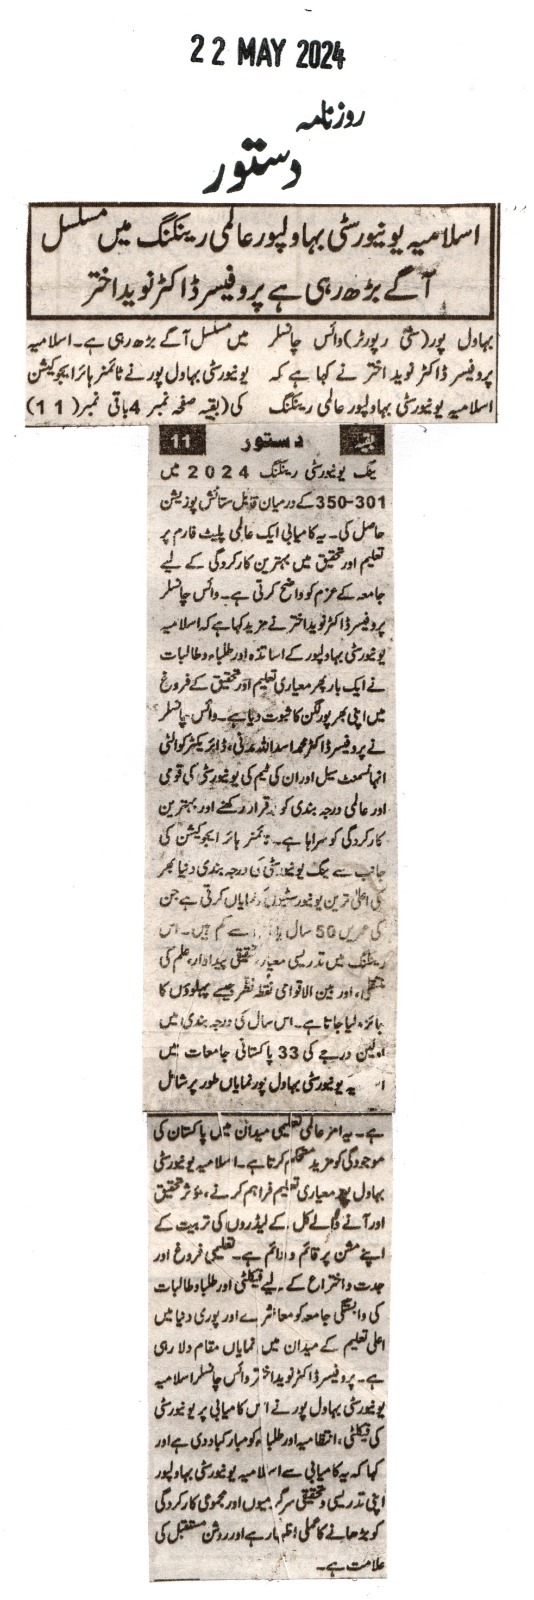 22 MAY 2024
روزنامہ
دستور
اسلامیہ یونیورسٹی بہاولپور عالمی رینکنگ میں مسلسل
آگے بڑھ رہی ہے پروفیسر ڈاکٹر نوید اختر
بہاول پور(سٹی رپورٹر)وائس چانسلر
پروفیسر ڈاکٹر نوید اختر نے کہا ہے کہ
اسلامیہ یونیورسٹی بہاولپور عالمی رینکنگ
میں مسلسل آگے بڑھ رہی ہے۔ اسلامیہ
یونیورسٹی بہاول پور نے ٹائمز ہائر ایجوکیشن
کی (بقیہ صفحہ نمبر 4 باقی نمبر(11)
بقیہ دستور 11
ینگ یونیورسٹی رینکنگ 2024 میں
301-350 کے درمیان قابل ستائش پوزیشن
حاصل کی۔ یہ کامیابی ایک عالمی پلیٹ فارم پر
تعلیم اور تحقیق میں بہترین کارکردگی کے لیے
جامعہ کے عزم کو واضح کرتی ہے۔ وائس چانسلر
پروفیسر ڈاکٹر نوید اختر نے مزید کہا ہے کہ اسلامیہ
یونیورسٹی بہاولپور کے اساتذہ اور طلباء و طالبات
نے ایک بار پھر معیاری تعلیم اور تحقیق کے فروغ
میں اپنی بھرپور لگن کا ثبوت دیا ہے۔ وائس چانسلر
نے پروفیسر ڈاکٹر محمد اسد اللہ مدنی، ڈائریکٹر کوالٹی
انہانسمنٹ سیل اور ان کی ٹیم کی یونیورسٹی کی قومی
اور عالمی درجہ بندی کو برقرار رکھنے اور بہترین
کارکردگی کو سراہا ہے۔ ٹائمز ہائر ایجوکیشن کی
جانب سے ینگ یونیورسٹی کی درجہ بندی دنیا بھر
کی اعلیٰ ترین یونیورسٹیوں کو نمایاں کرتی ہے جن
کی عمریں 50 سال یا اس سے کم ہیں۔ اس
رینکنگ میں تدریسی معیار، تحقیقی پیداوار، علم کی
منتقلی، اور بین الاقوامی نقطہ نظر جیسے پہلوؤں کا
جائزہ لیا جاتا ہے۔ اس سال کی درجہ بندی میں
اولین درجے کی 33 پاکستانی جامعات میں
اسلامیہ یونیورسٹی بہاول پور نمایاں طور پر شامل
ہے۔ یہ امر عالمی تعلیمی میدان میں پاکستان کی
موجودگی کو مزید مستحکم کرتا ہے۔ اسلامیہ یونیورسٹی
بہاول پور معیاری تعلیم فراہم کرنے، مؤثر تحقیق
اور آنے والے کل کے لیڈروں کی تربیت کے
اپنے مشن پر قائم و دائم ہے۔ تعلیمی فروغ اور
جدت و اختراع کے لیے فیکلٹی اور طلبا و طالبات
کی وابستگی جامعہ کو معاشرے اور پوری دنیا میں
اعلیٰ تعلیم کے میدان میں نمایاں مقام دلا رہی
ہے۔ پروفیسر ڈاکٹر نوید اختر وائس چانسلر اسلامیہ
یونیورسٹی بہاول پور نے اس کامیابی پر یونیورسٹی
کی فیکلٹی، انتظامیہ اور طلباء کو مبارکباد دی ہے اور
کہا کہ یہ کامیابی سے اسلامیہ یونیورسٹی بہاولپور
اپنی تدریسی و تحقیقی سرگرمیوں اور مجموعی کارکردگی
کو بڑھانے کا عملی اظہار ہے اور روشن مستقبل کی
علامت ہے۔